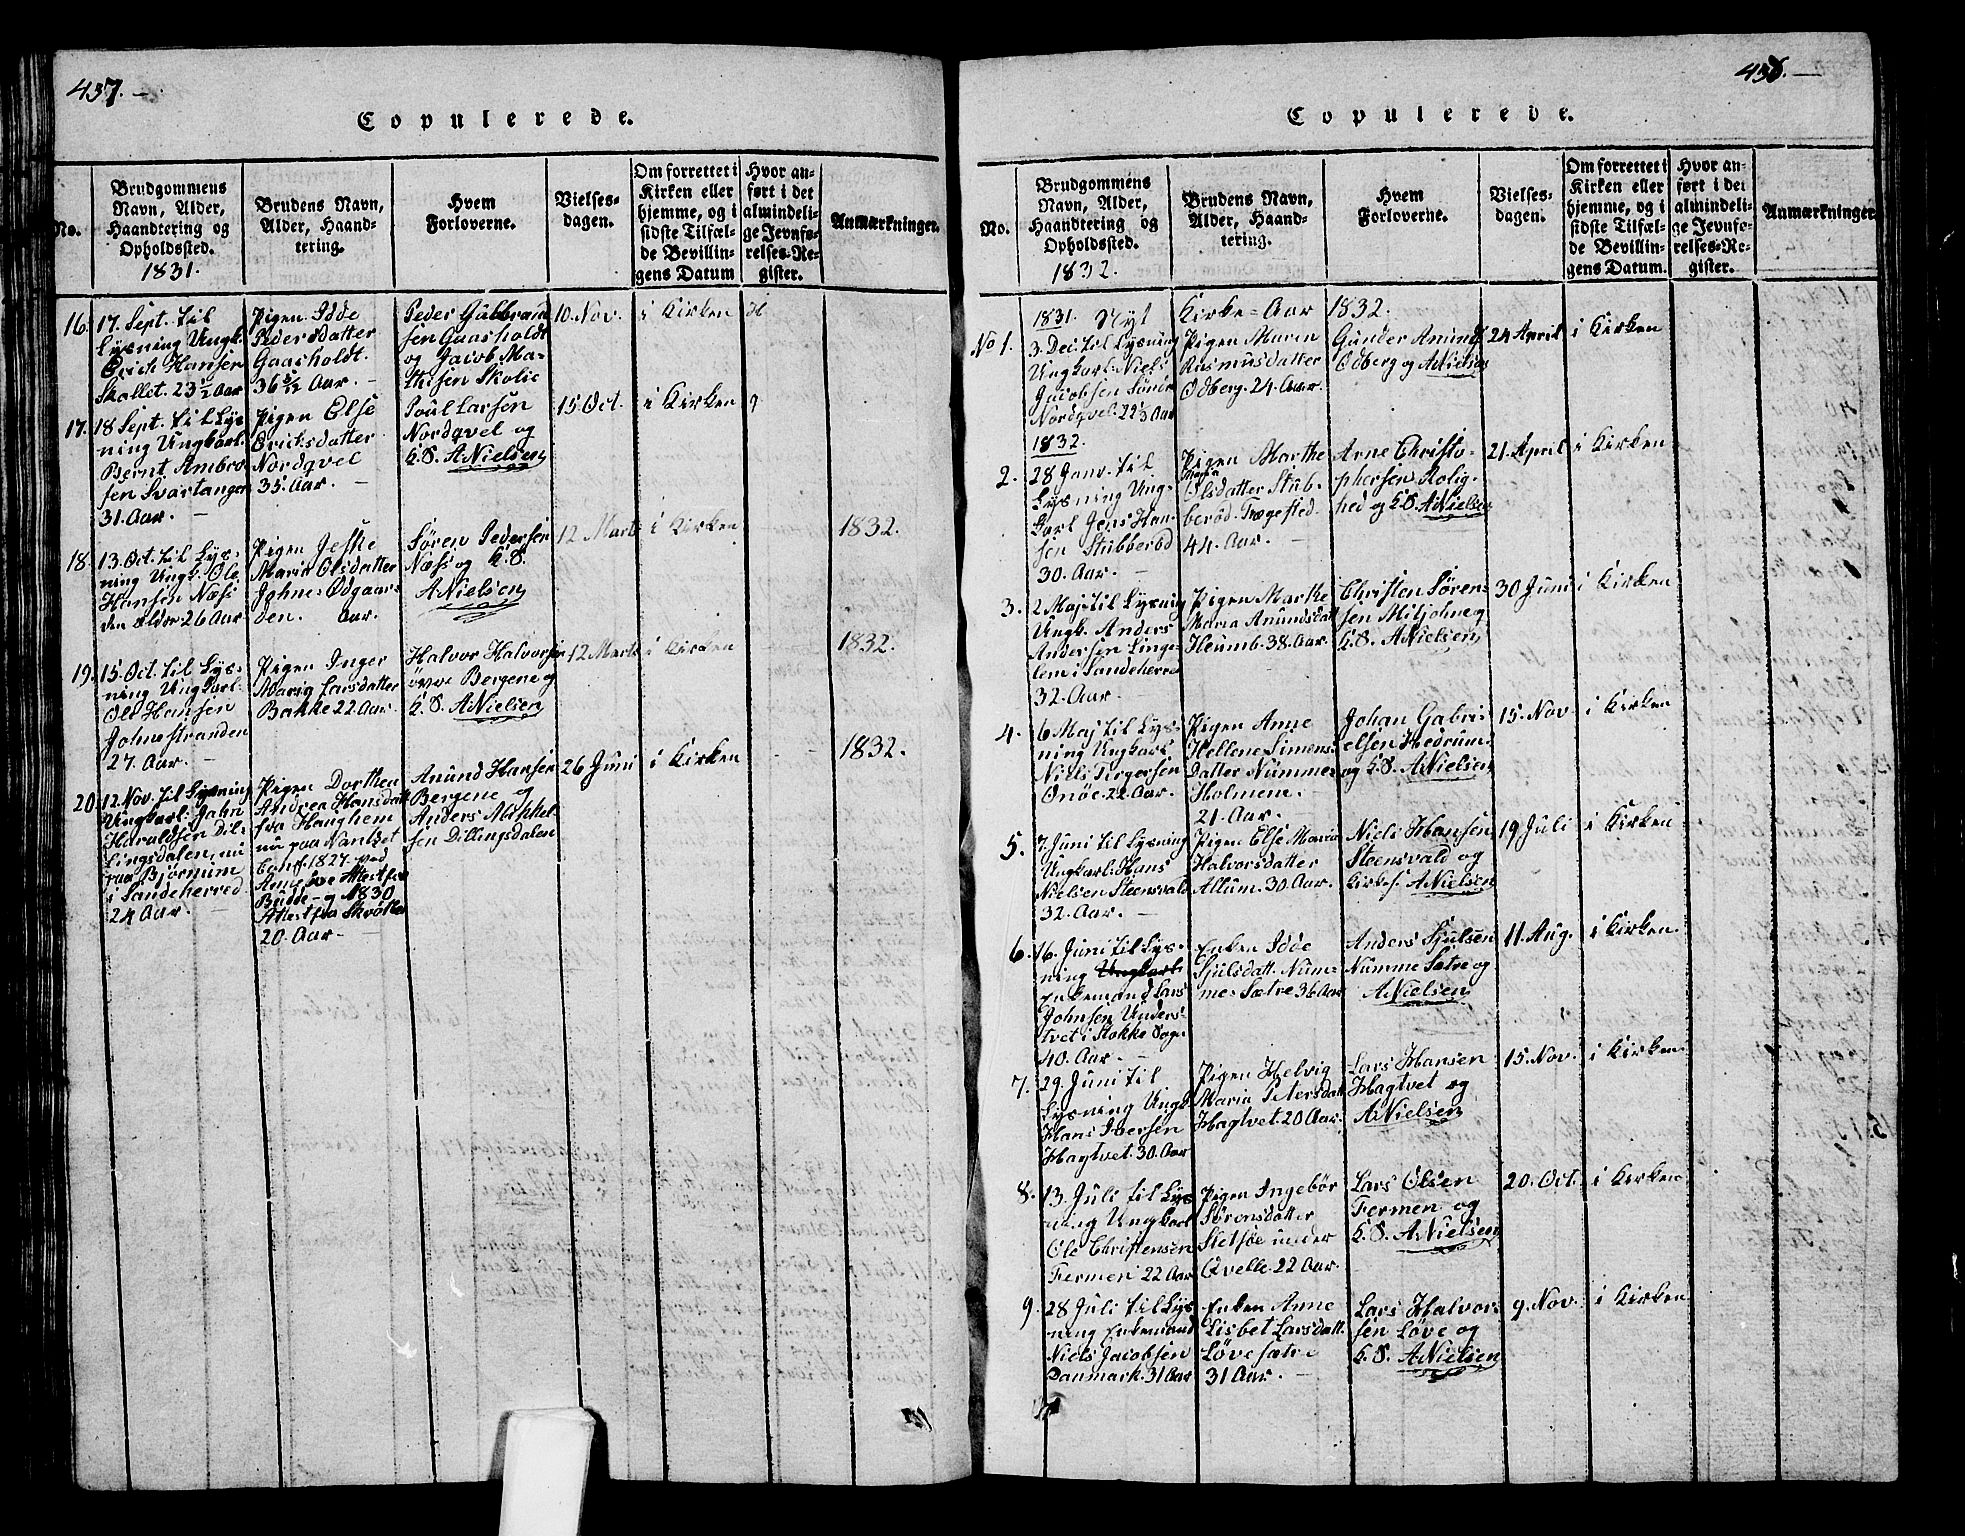 437.
Copulerede.
No.
Brudgommens
Navn, Alder,
Haandtering og
Opholdssted.
1831.
Brudens Navn,
Alder, Haand-
tering.
Hvem
Forloverne.
Vielses-
dagen.
Om forrettet i
Kirken eller
hjemme, og i
sidste Tilfæl-
de Bevillin-
gens Datum
Hvor an-
ført i det
almindeli-
ge Jevnfø-
relses-Re-
gister.
Anmærkninger.
16.
17. Sept. til
Lysning Ungk.
Erich Hansen
Skallet. 23 1/2 Aar
Pigen Idde
Pedersdatter
Gaasholdt.
36 5/12 Aar. –
Peder Gulbrand
sen Gaasholdt
og Jacob Ma-
thisen Skolie
10. Nov.
i Kirken
17.
18 Sept. til Lys
ning Ungkarl.
Bernt Ambro
sen Svartangen
31. Aar. –
Pigen Else
Erichsdatter
Nordqvel
35. Aar. –
Poul Larsen
Nordqvel og
K.S. A Nielsen
15. Oct.
i Kirken
18
13. Oct. til Lys-
ning Ungk. Ole
Hansen Næss
den Ældre 26 Aar
Pigen Jeske
Maria Olsdatter
Johnes-Odgaar-
den. Aar.
Søren Pedersen
Næss og K.S.
A Nielsen
12 Marts
i Kirken
1832.
19.
15. Oct. til Lys-
ning Ungkarl.
Ole Hansen
Johnsstranden
27. Aar. –
Pigen Inger
Maria Larsdatter
Bakke 22 Aar.
Halvor Halvorsen
øvre Bergene og
K.S. A Nielsen
12 Marts
i Kirken
1832.
20.
12. Nov. til Lysning
Ungkarl. John
Haraldsen Dil-
lingsdalen, nu
paa Bjørnum
i Sandeherred
24 Aar. –
Pigen Dorthea
Andrea Hansdatt
fra Haughem
nu paa Nantset
Conf. 1827 ved
Arne Attest fra
Budde – og 1830
Attest fra
20. Aar –
Anund Hansen
Bergene og
Anders Mikkel-
sen Dillingsdalen
26 Juni
i Kirken
1832.
438.
Copulerede.
No.
Brudgommens
Navn, Alder,
Haandtering og
Opholdssted.
1832.
Brudens Navn,
Alder, Haand-
tering.
Hvem
Forloverne.
Vielses-
dagen.
Om forrettet i
Kirken eller
hjemme, og i
sidste Tilfæl-
de Bevillin-
gens Datum.
Hvor an-
ført i det
almindeli-
ge Jevnfø-
relses-Re-
gister.
Anmærkninger
1831. Nyt Kirke=Aar 1832.
No 1.
3. Dec. til Lysning
Ungkarl Niels
Jacobsen Søndr
Nordqvel. 22 1/3 Aar
Pigen Maren
Rasmusdatter
Odberg. 24. Aar.
Gunder Amund
Odberg og A Nielsen
24 April
i Kirken
1832.
2.
28 Janv. til
Lysning Ung-
karl Jens Han-
sen Stubberød
30. Aar. –
Pigen Marthe
Maria
Olsdatter Stub-
berød. Trægested
44. Aar. –
Arne Christo-
phersen Rolig-
hed og K.S. A Nielsen
21. April
i Kirken
3.
2 Maj til Lysning
Ungk. Anders
Andersen Linge-
lem i Sandeherred
32. Aar. –
Pigen Marthe
Maria Anundsdatt
Heumb. 38. Aar.
Christen Søren-
sen Miljohne og
K.S. A Nielsen
30 Juni
i Kirken
4.
6 Maj til Lys-
ning Ungkarl
Niels Torgersen
Onøe. 22 Aar.
Pigen Anne
Hellene Simens-
datter Nummes
Holmem. –
21. Aar.
Johan Gabri-
elsen Hedrum-
og K.S. A Nielsen
15. Nov.
i Kirken
5.
7. Juni til Lysning
Ungkarl: Hans
Nielsen Steensvald
32. Aar. –
Pigen Else Maria
Halvorsdatter
Allum. 30. Aar.
Niels Hansen
Steensvald og
Kirkes: A Nielsen
19 Juli
i Kirken
6.
16. Juni til Lys-
ning Ungkarl
Enkemand Lars
Johnsen Unders-
tvet i Stokke Sogn
40. Aar. –
Enken Idde
Sjulsdatt. Num-
me=Sætre 36 Aar
Anders Sjulsen
Numme Sætre og
A Nielsen
11. Aug.
i Kirken.
7.
29. Juni til
Lysning Ungk
Hans Iversen
Hagtvet. 30. Aar
Pigen Helvig
Maria Petersdatt
Hagtvet. 20 Aar.
Lars Hansen
Hagtvet og
A Nielsen
15. Nov.
i Kirken.
8.
13. Juli til Lys
ning Ungkarl
Ole Christensen
Fermen 22 Aar
Pigen Ingebør
Sørensdatter
Sletsøe under
Qvelle. 22 Aar.
Lars Olsen
Fermen og
K.S. A Nielsen
20. Oct.
i Kirken
9.
28 Juli til Lys
ning Enkemand
Niels Jacobsen
Danmark. 31 Aar
Enken Anne
Lisbet Larsdatt.
Løve sætre
31 Aar. –
Lars Halvor-
sen Løve og
K.S. A Nielsen
9. Nov.
i Kirken